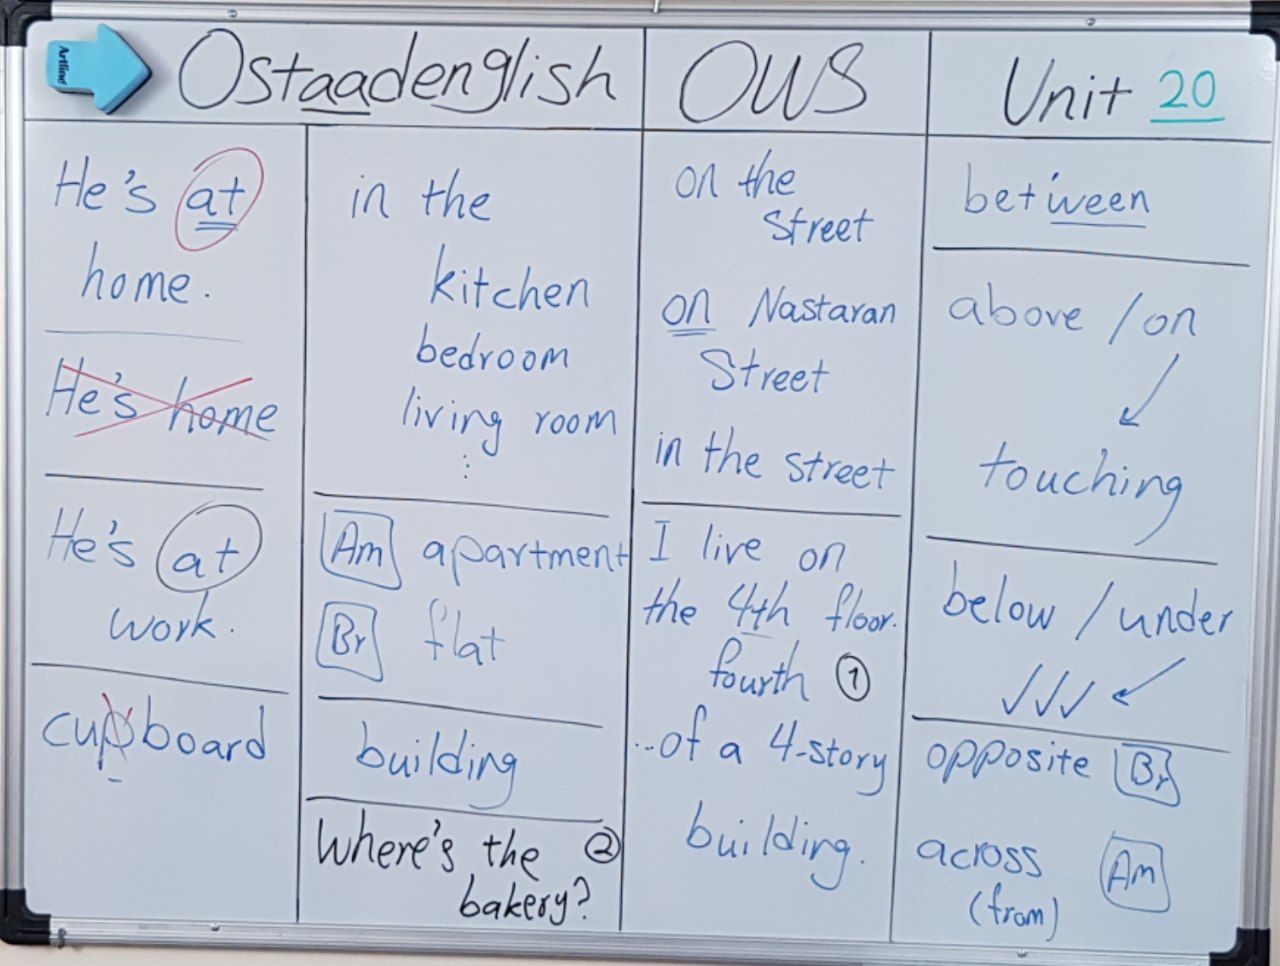 Artline
Ostaadenglish
OWS
Unit 20
He's at
home.
He's home
He's at
work.
cupboard
in the
kitchen
bedroom
living room
⋮
Am apartment
Br flat
building
Where's the ②
bakery?
on the
Street
on Nastaran
Street
in the street
I live on
the 4th floor.
fourth ①
...of a 4-story
building.
between
above / on
touching
below / under
✓✓✓
opposite Br
across Am
(from)